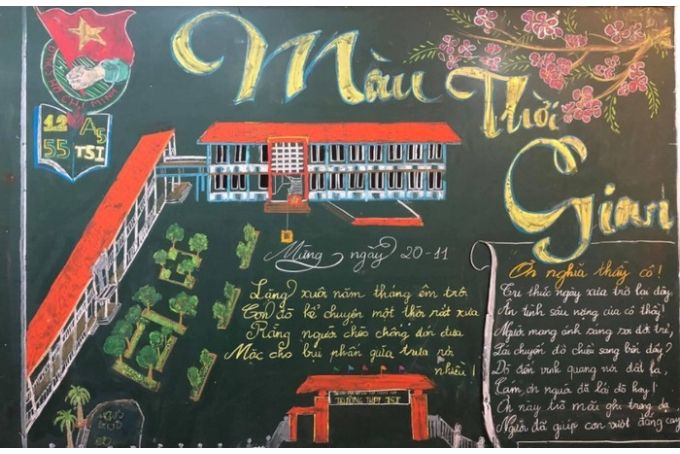 ĐOÀN TNCS HỒ CHÍ MINH
12 A5
55 TSI
Màu
Thời
Gian
Mừng ngày 20-11
Lặng xuôi năm tháng êm trôi
Con đò kể chuyện một thời rất xưa
Rằng người chèo chống đón đưa
Mặc cho bụi phấn giữa trưa rơi nhiều!
Ơn nghĩa thầy cô!
Tri thức ngày xưa trở lại đây,
Ân tình sâu nặng của cô thầy!
Người mang ánh sáng soi đời trẻ,
Lái chuyến đò chiều sang bến đây?
Đò đến vinh quang nơi đất lạ,
Cám ơn người đã lái đò hay!
Ơn này trò mãi ghi trong dạ,
Người đã giúp con vượt đắng cay
TRƯỜNG THPT TSI